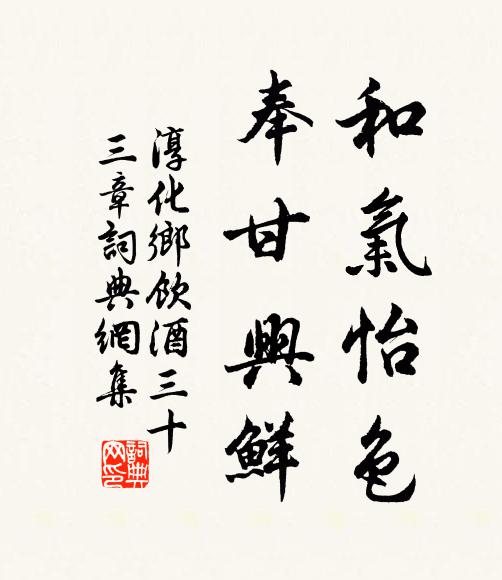 和氣怡色
奉甘興鮮
淳化鄉飲酒三十
三章詞典網集
詞典
网印